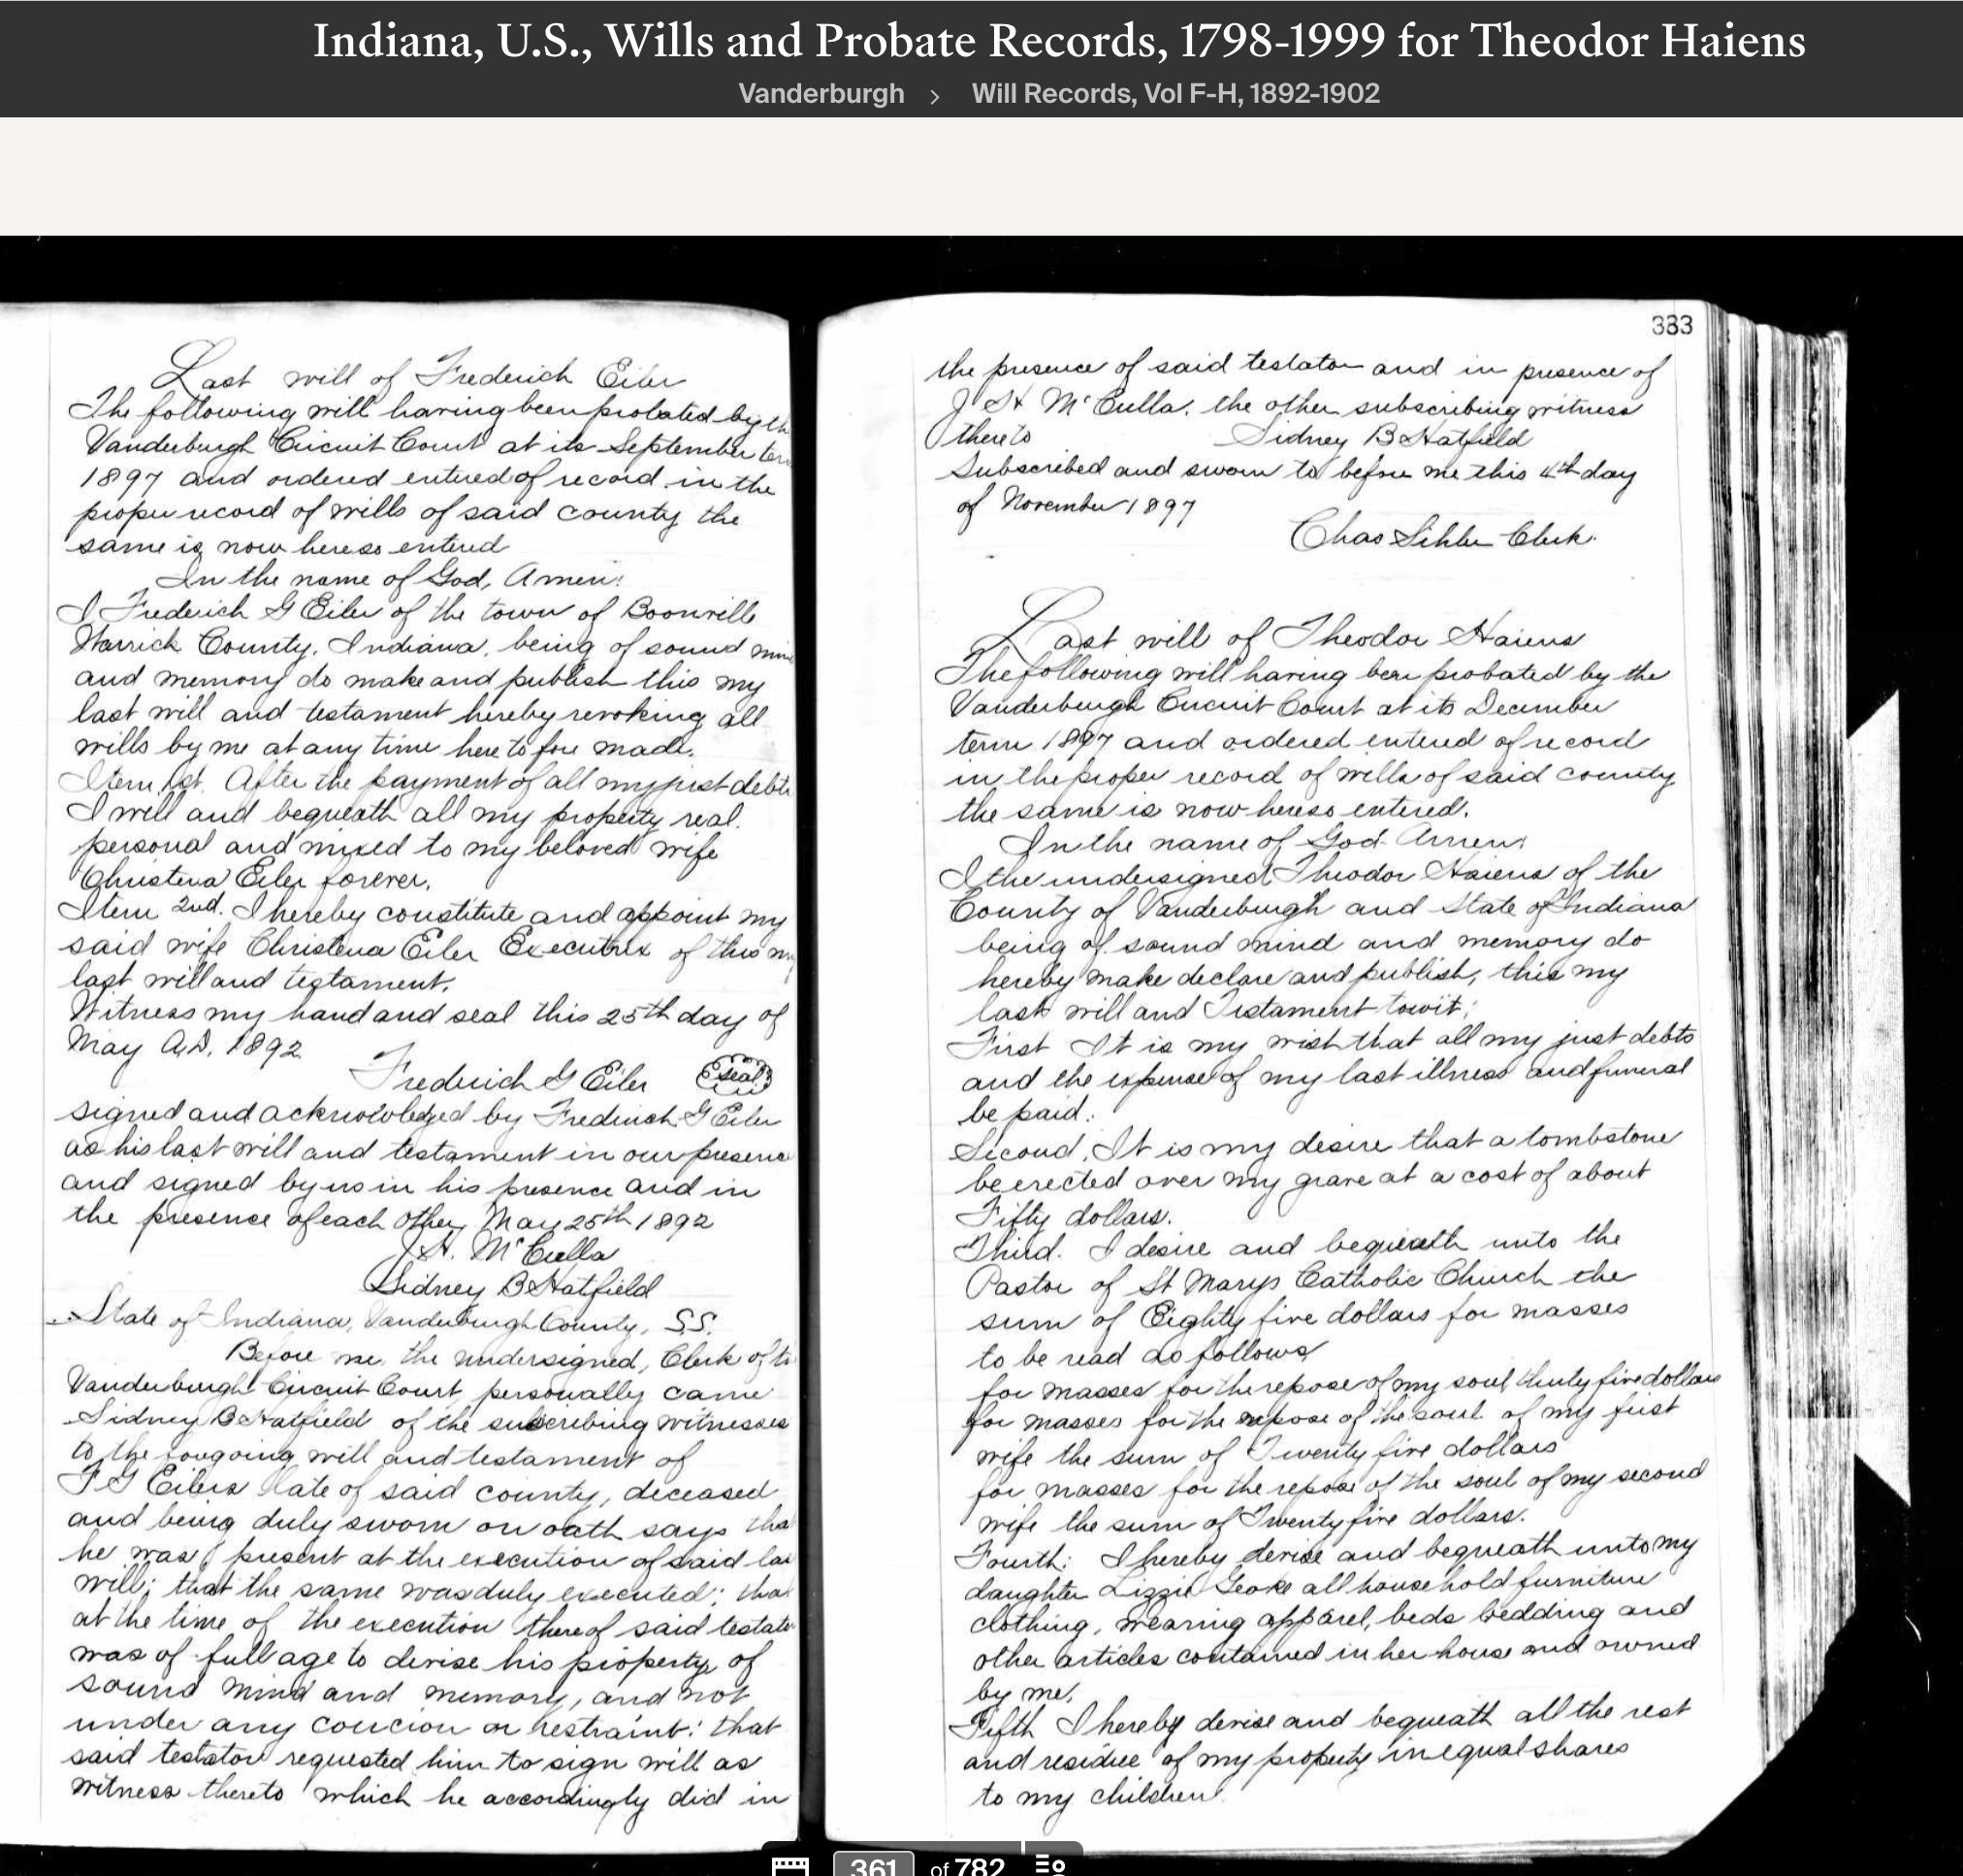 Indiana, U.S., Wills and Probate Records, 1798-1999 for Theodor Haiens
Vanderburgh > Will Records, Vol F-H, 1892-1902
Last will of Frederich Eiler
The following will having been probated by th
Vanderburgh Circuit Court at its September ter
1897 and ordered entered of record in the
proper record of wills of said county the
same is now here so entered
In the name of God, Amen:
I Frederich G Eiler of the town of Boonville
Warrick County, Indiana, being of sound min
and memory do make and publish this my
last will and testament hereby revoking all
wills by me at any time here to fore made.
Item 1st. After the payment of all my just debts
I will and bequeath all my property real.
personal and mixed to my beloved wife
Christena Eiler forever.
Item 2nd. I hereby constitute and appoint my
said wife Christena Eiler Executrix of this my
last will and testament.
Witness my hand and seal this 25th day of
May A.D. 1892
Frederich G Eiler Seal
signed and acknowledged by Frederich G Eiler
as his last will and testament in our presence
and signed by us in his presence and in
the presence of each other May 25th 1892
J. H. McCulla
Sidney B Hatfield
State of Indiana, Vanderburgh County, S.S.
Before me, the undersigned, Clerk of th
Vanderburgh Circuit Court, personally came
Sidney B Hatfield of the subscribing witnesses
to the foregoing will and testament of
F G Eilers late of said county, deceased
and being duly sworn on oath says tha
he was present at the execution of said las
will; that the same was duly executed; tha
at the time of the execution thereof said testato
was of full age to devise his property, of
sound mind and memory, and not
under any coercion or restraint: that
said testator requested him to sign will as
witness thereto which he accordingly did in
383
the presence of said testator and in presence of
J H McCulla. the other subscribing witness
thereto Sidney B Hatfield
Subscribed and sworn to before me this 4th day
of November 1897
Chas Sihler Clerk.
Last will of Theodor Haiens
The following will having been probated by the
Vanderburgh Circuit Court at its December
term 1897 and ordered entered of record
in the proper record of wills of said county
the same is now here so entered.
In the name of God Amen:
I the undersigned Theodor Haiens of the
County of Vanderburgh and State of Indiana
being of sound mind and memory do
hereby make declare and publish, this my
last will and Testament towit:
First It is my wish that all my just debts
and the expense of my last illness and funeral
be paid.
Second. It is my desire that a tombstone
be erected over my grave at a cost of about
Fifty dollars.
Third. I desire and bequeath unto the
Pastor of St Marys Catholic Church the
sum of Eighty five dollars for masses
to be read as follows
for masses for the repose of my soul thirty five dollars
for masses for the repose of the soul of my first
wife the sum of Twenty five dollars
for masses for the repose of the soul of my second
wife the sum of Twenty five dollars.
Fourth: I hereby devise and bequeath unto my
daughter Lizzie all household furniture
clothing, wearing apparel, beds bedding and
other articles contained in her house and owned
by me.
Fifth I hereby devise and bequeath all the rest
and residue of my property in equal shares
to my children
361 of 782